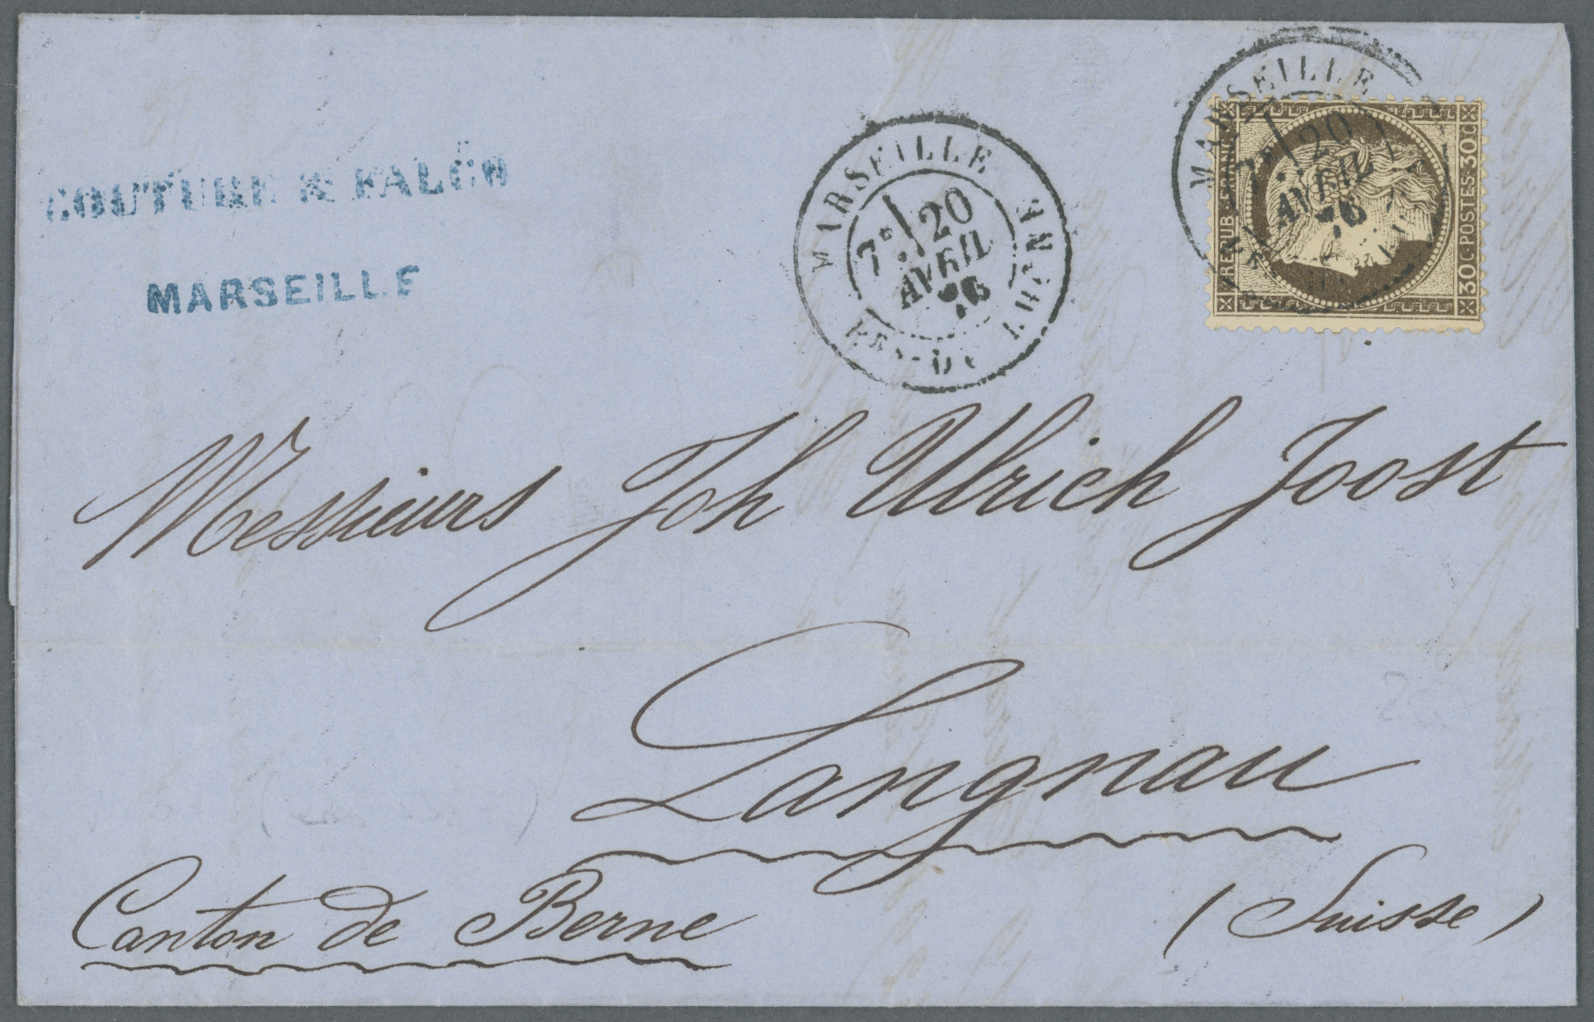 COUTURE & FALCO
MARSEILLE
MARSEILLE
7E 20
AVRIL
76
BES-DU-RHÔNE
MARSEILLE
7E 20
AVRIL
76
REPUB. FRANC.
30 C. POSTES. 30 C.
Messieurs Joh Ulrich Joost
Langnau
Canton de Berne (Suisse)